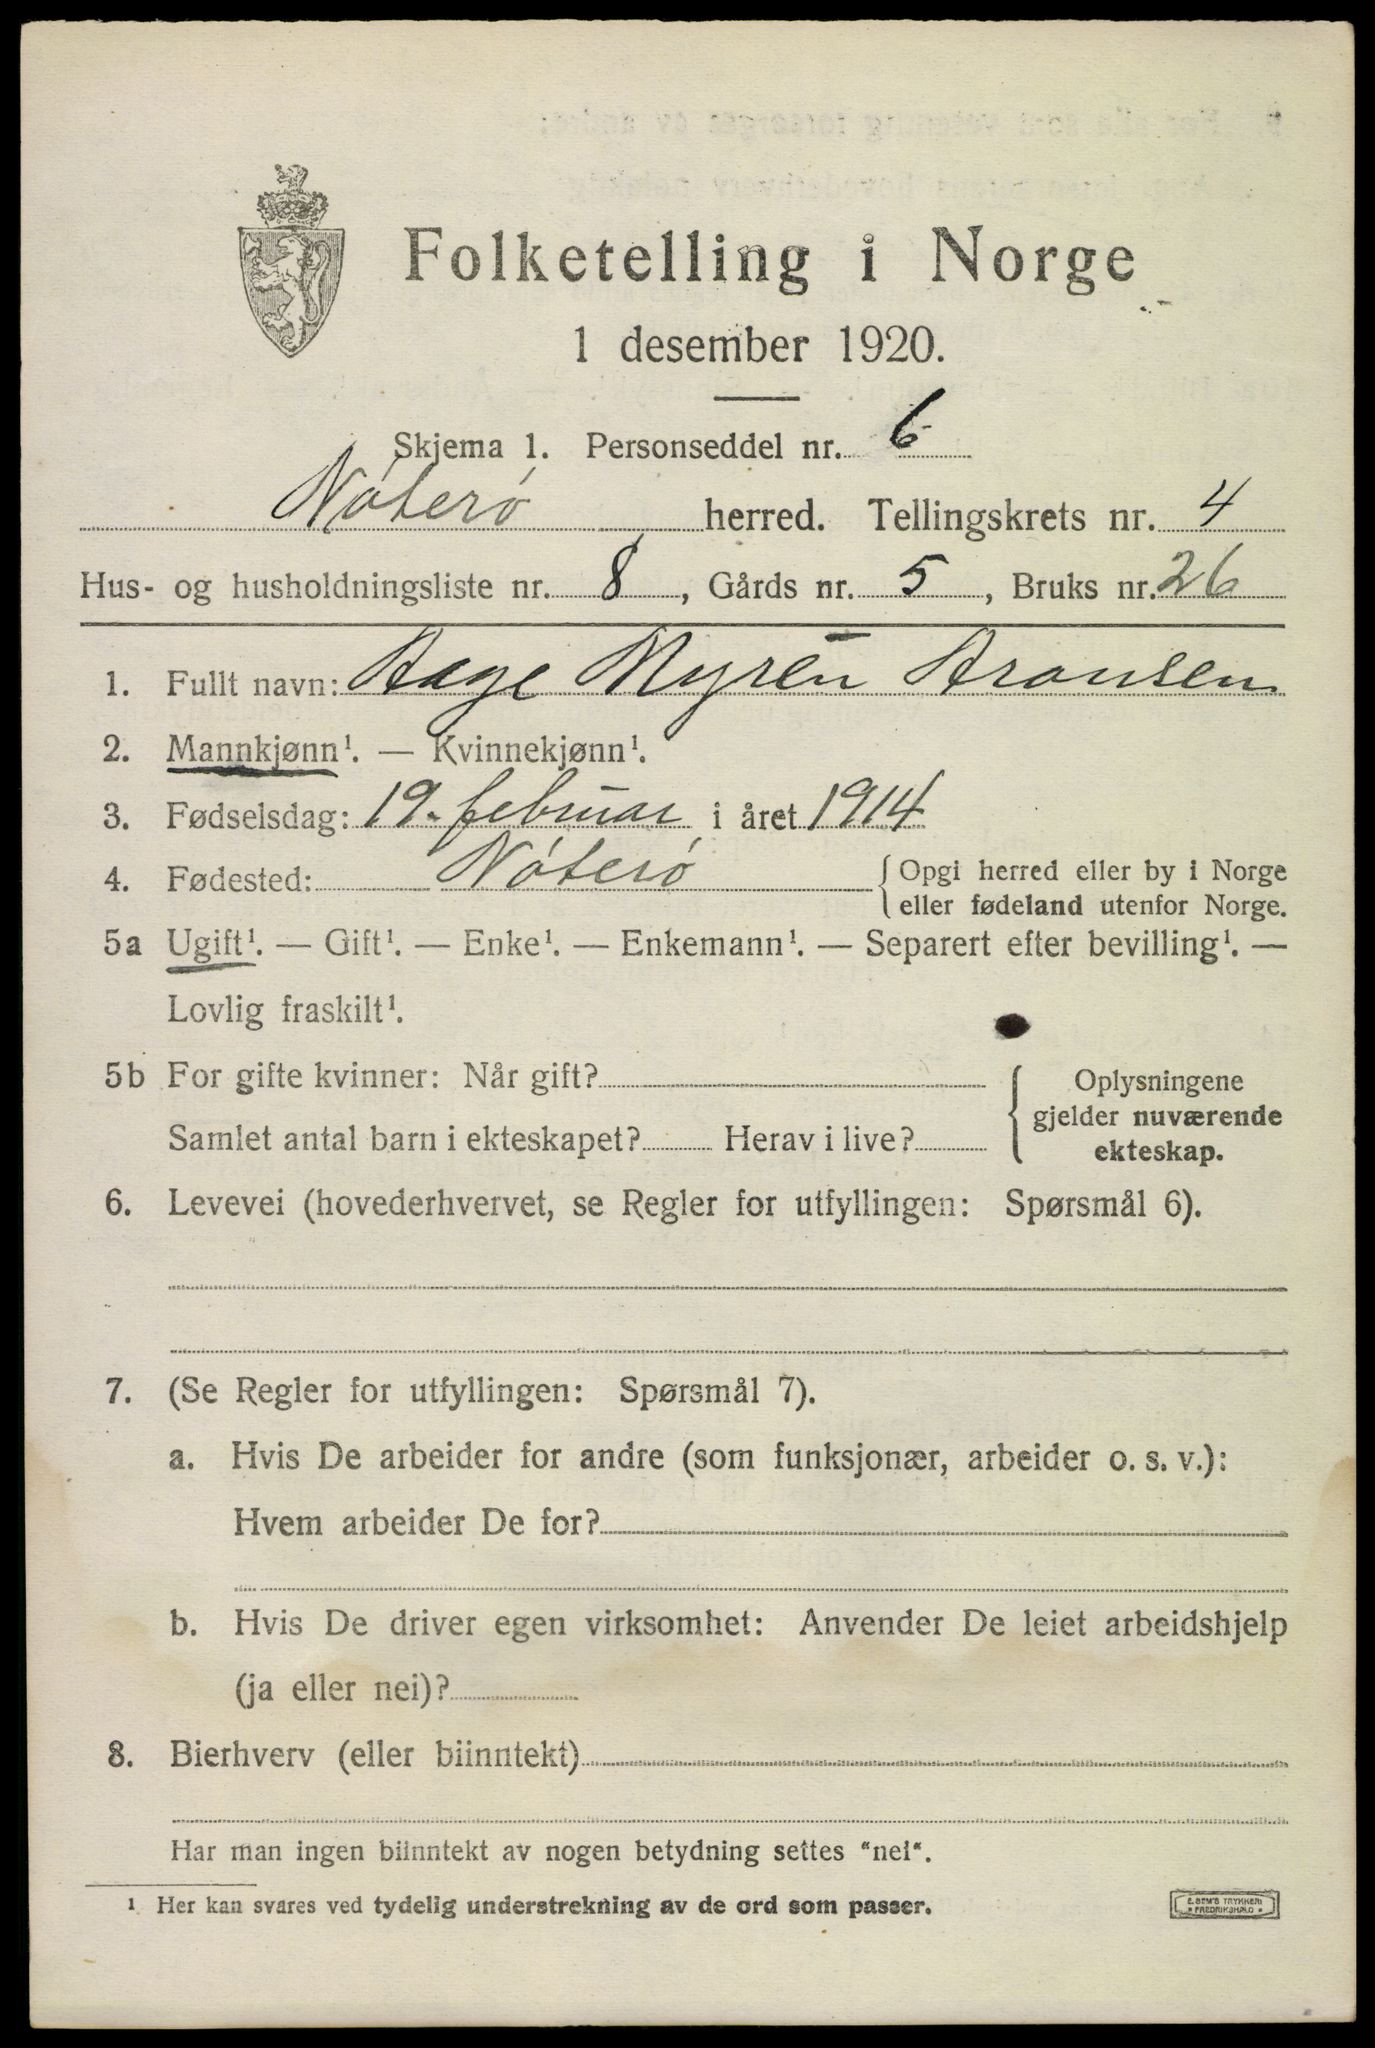 Folketelling i Norge
1 desember 1920.
Skjema 1. Personseddel nr. 6
Nøterø herred. Tellingskrets nr. 4
Hus- og husholdningsliste nr. 8, Gårds nr. 5, Bruks nr. 26
1. Fullt navn: Aage Myrén Aronsen
2. Mannkjønn¹. — Kvinnekjønn¹.
3. Fødselsdag: 19. februar i året 1914
4. Fødested: Nøterø { Opgi herred eller by i Norge
eller fødeland utenfor Norge.
5a Ugift¹. — Gift¹. — Enke¹. — Enkemann¹. — Separert efter bevilling¹. —
Lovlig fraskilt¹.
5b For gifte kvinner: Når gift?
Samlet antal barn i ekteskapet? Herav i live?
{ Oplysningene
gjelder nuværende
ekteskap.
6. Levevei (hovederhvervet, se Regler for utfyllingen: Spørsmål 6).
7. (Se Regler for utfyllingen: Spørsmål 7).
a. Hvis De arbeider for andre (som funksjonær, arbeider o. s. v.):
Hvem arbeider De for?
b. Hvis De driver egen virksomhet: Anvender De leiet arbeidshjelp
(ja eller nei)?
8. Bierhverv (eller biinntekt)
Har man ingen biinntekt av nogen betydning settes "nei".
¹ Her kan svares ved tydelig understrekning av de ord som passer.
E. SEM'S TRYKKERI
* FREDRIKSHALD *